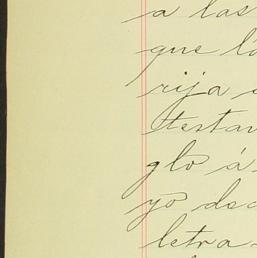 a las
que l
rija
testa
gló á
yo de
letra